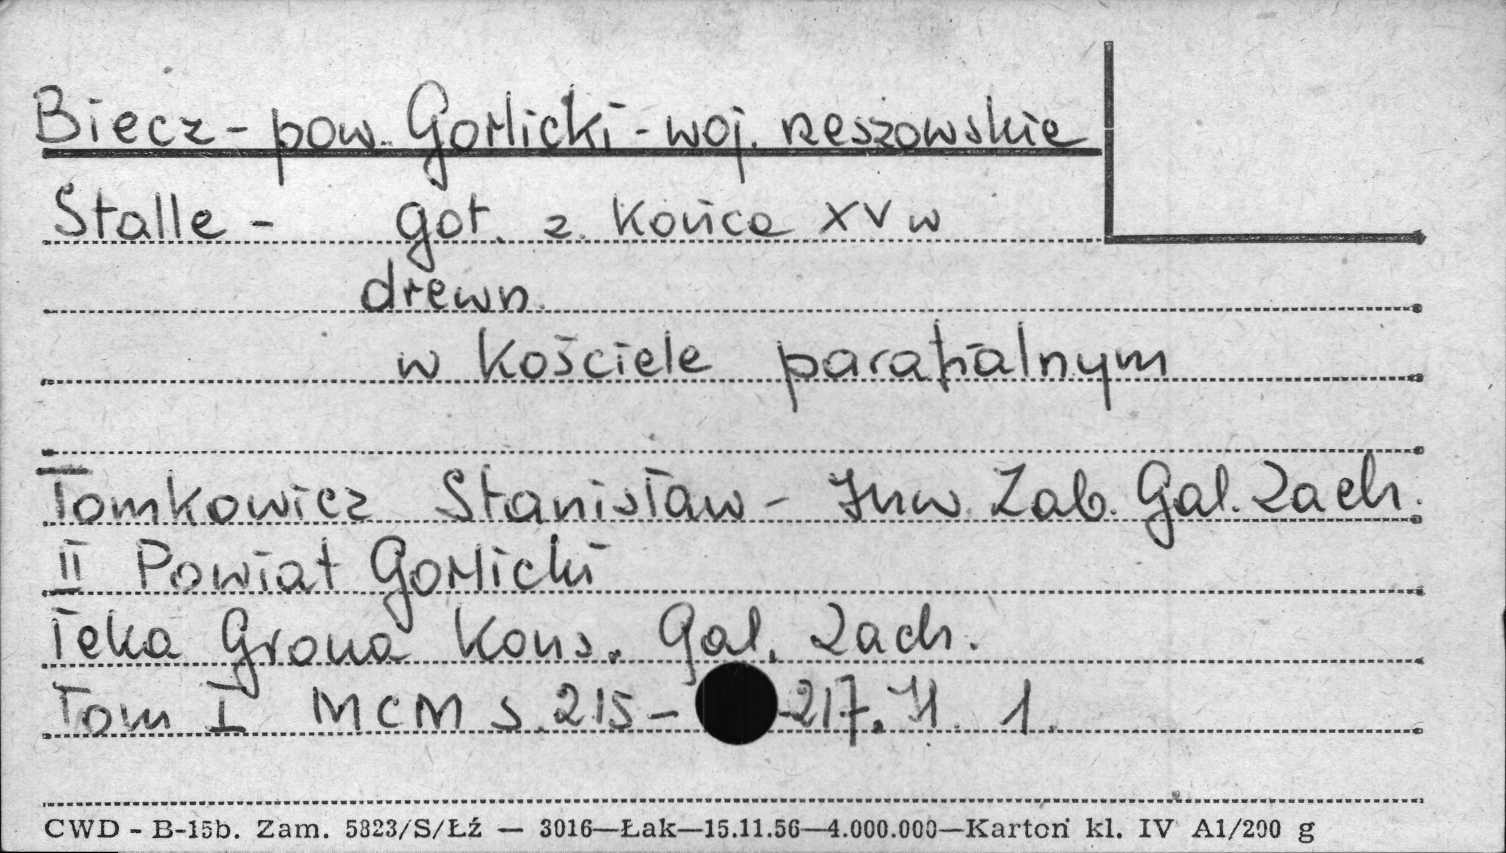 Biecz - pow. Gorlicki - woj. rzeszowskie
Stalle - got. z końca XV w
drewn.
w kościele parafialnym
Tomkowicz Stanisław - Inw. Zab. Gal. Zach.
II Powiat Gorlicki
Teka Grona Kons. Gal. Zach.
Tom I MCM s. 215 - 217. Il. 1.
CWD - B-15b. Zam. 5823/S/Łź — 3016—Łak—15.11.56—4.000.000—Karton kl. IV A1/200 g